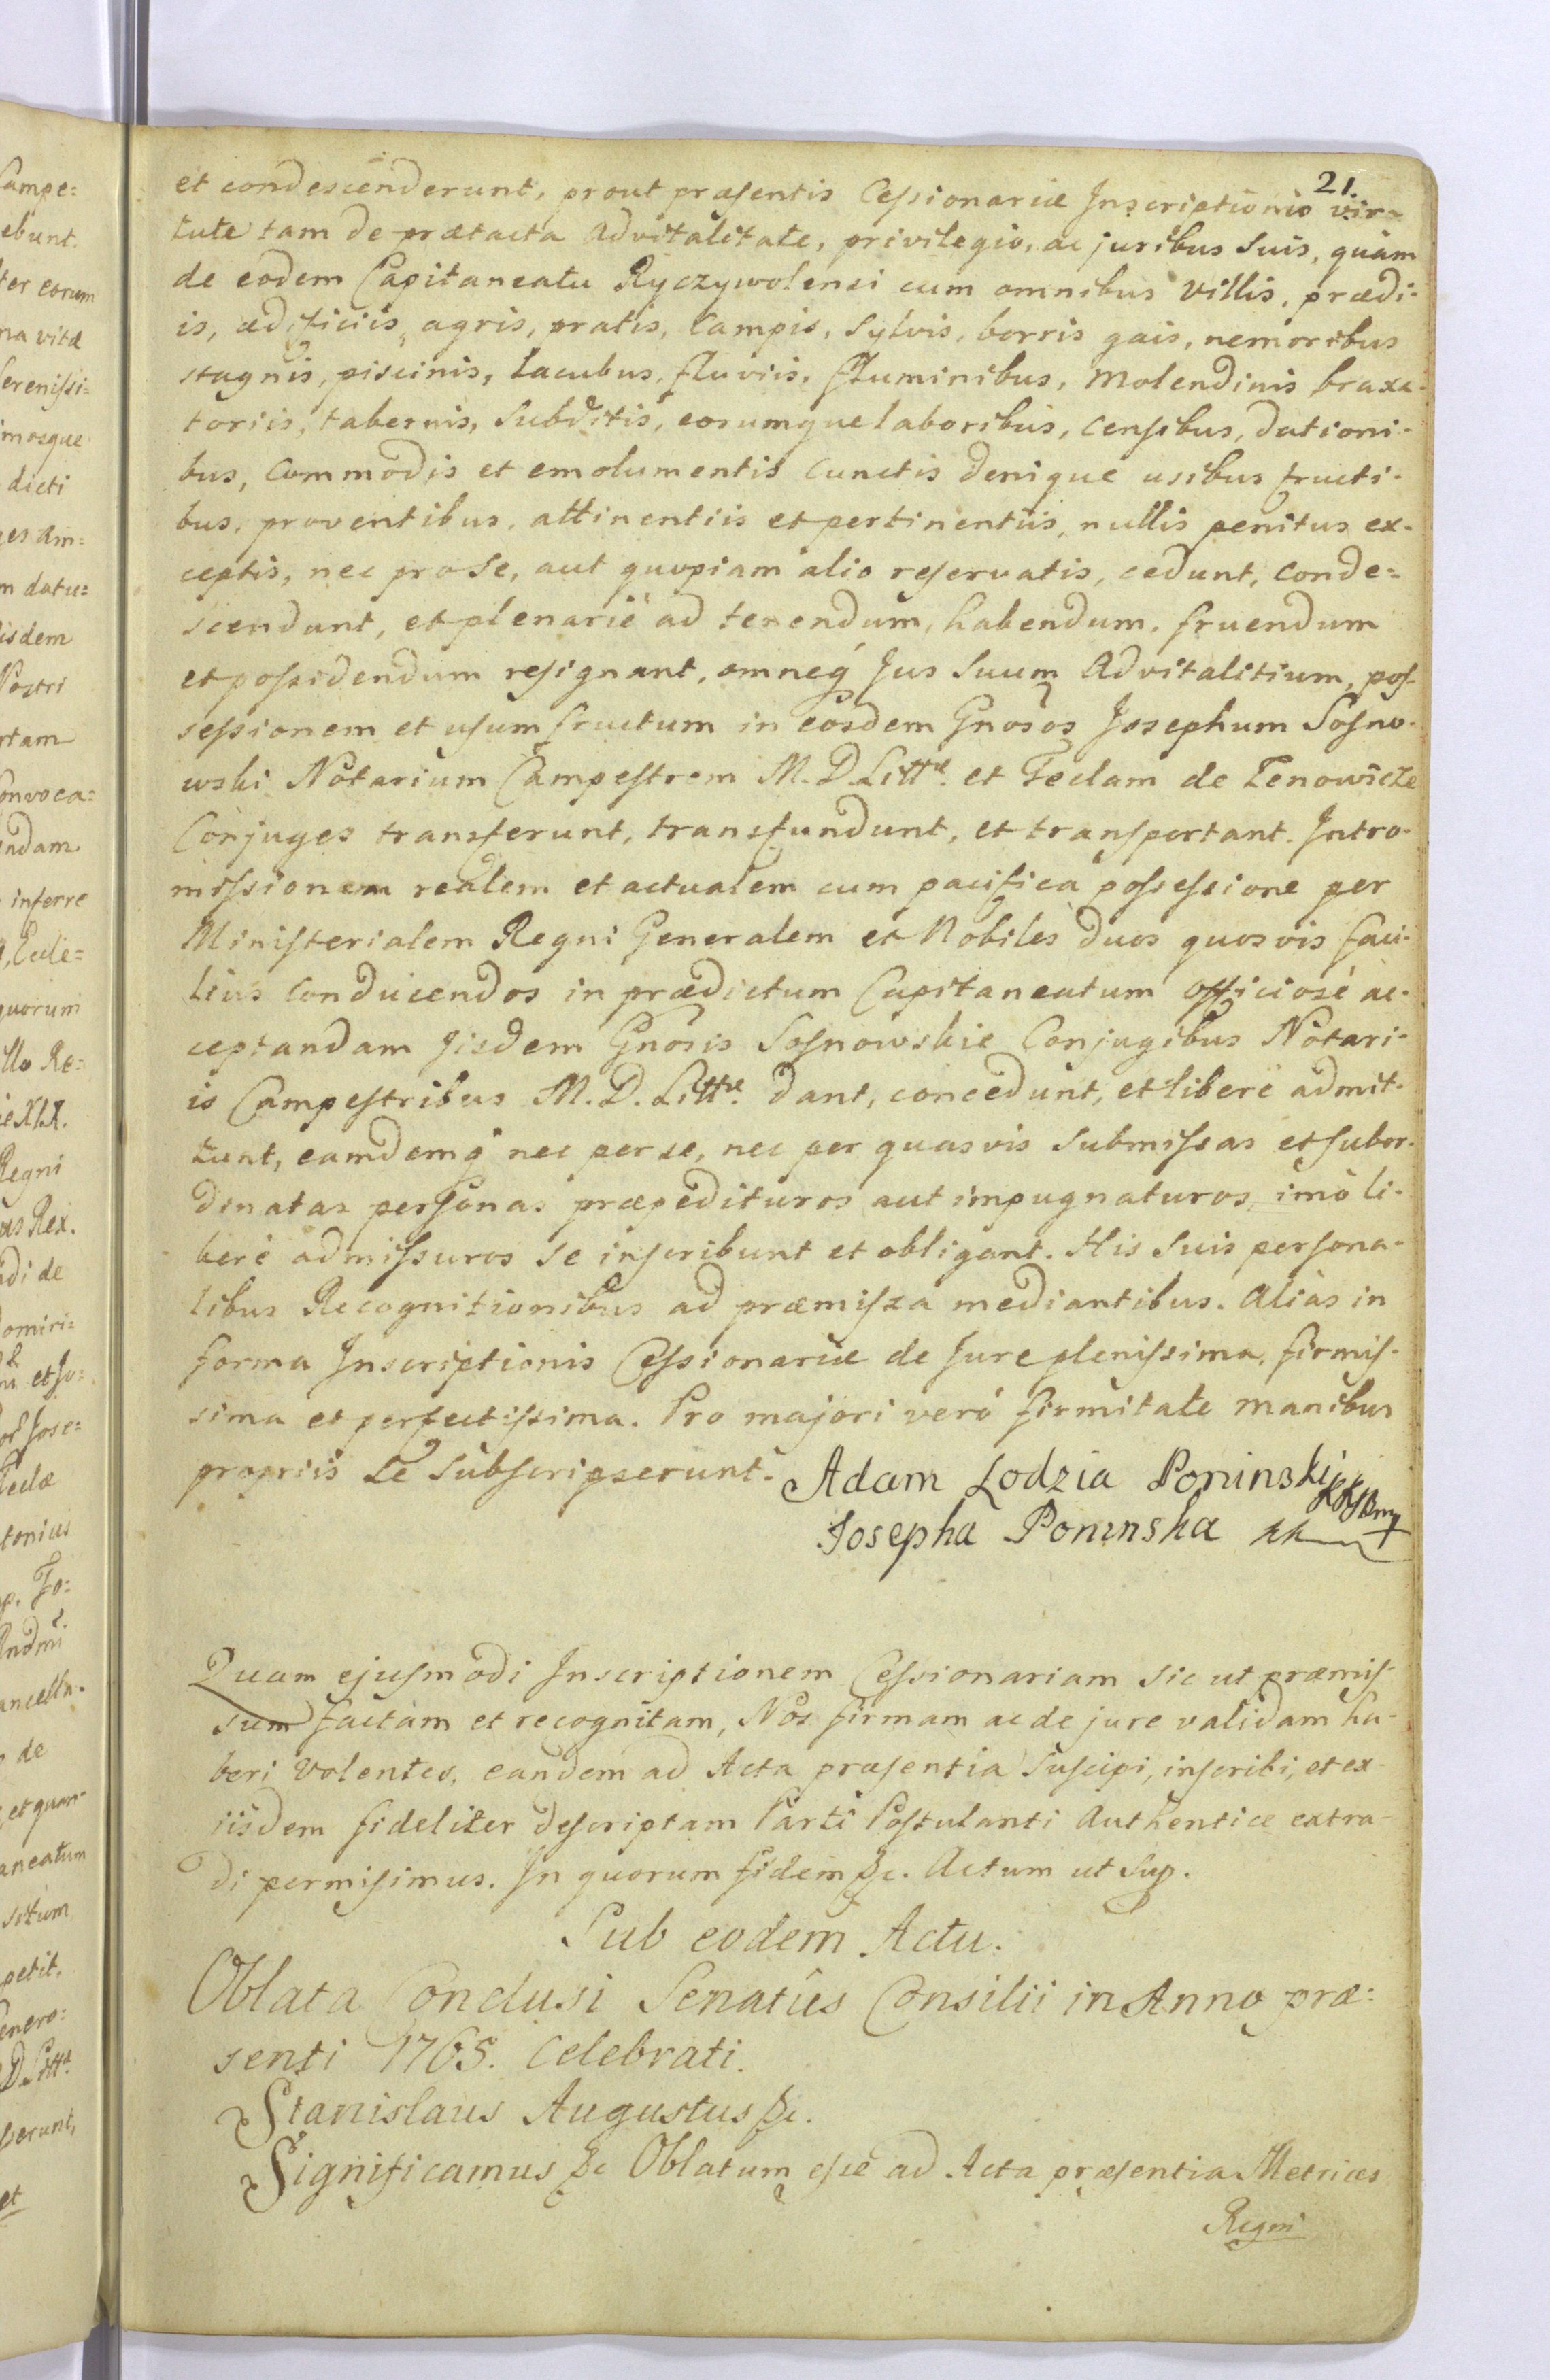 21.
et condescenderunt, prout præsentis Cessionariæ Inscriptionis vir=
tute tam de prætacta Advitalitate, privilegio, ac juribus suis, quàm
de eodem Capitaneatu Ryczywolensi cum omnibus villis, prædi-
is, ædificiis, agris, pratis, campis, sylvis, borris gais, nemoribus
stagnis, piscinis, lacubus, fluviis, fluminibus, molendinis braxa-
toriis, tabernis, subditis, eorumque laboribus, censibus, dationi-
bus, commodis et emolumentis cunctis denique usibus fructi-
bus, proventibus, attinentiis et pertinentiis, nullis penitus ex-
ceptis, nec pro se, aut quopiam alio reservatis, cedunt, conde=
scendunt, et plenariè ad tenendum, habendum, fruendum
et possidendum resignant, omneq Jus suum Advitalitium, pos-
sessionem et usumfructum in eosdem Gnosos Josephum Sosno-
wski Notarium Campestrem M. D. Littæ. et Teclam de Zenowicze
Conjuges transferunt, transfundunt, et transportant. Intro-
missionem realem et actualem cum pacifica possessione per
Ministerialem Regni Generalem et Nobiles duos quosvis faci-
liùs conducendos in prædictum Capitaneatum officiosè ac-
ceptandam Iisdem Gnosis Sosnowskie Conjugibus Notari-
is Campestribus M. D. Littæ. dant, concedunt, et liberè admit-
tunt, eamdemq nec per se, nec per quasvis submissas et subor-
dinatas personas præpedituros aut impugnaturos, imò li-
berè admissuros se inscribunt et obligant. His suis persona-
libus Recognitionibus ad præmissa mediantibus. Aliàs in
forma Inscriptionis Cessionariæ de Jure plenissima, firmis-
sima et perfectissima. Pro majori verò firmitate manibus
propriis se subscripserunt. Adam Lodzia Poninski
Josepha Poninska
Quam ejusmodi Inscriptionem Cessionariam sic ut præmis-
sum factam et recognitam, Nos firmam ac de jure validam ha-
beri volentes, eandem ad Acta præsentia suscipi, inscribi, et ex-
iisdem fideliter descriptam Parti Postulanti Authentice extra-
di permisimus. In quorum fidem &c. Actum ut sup.
Sub eodem Actu.
Oblata Conclusi Senatûs Consilii in Anno præ=
senti 1765. Celebrati.
Stanislaus Augustus &c.
Significamus &c Oblatum esse ad Acta præsentia Metrices
Regni